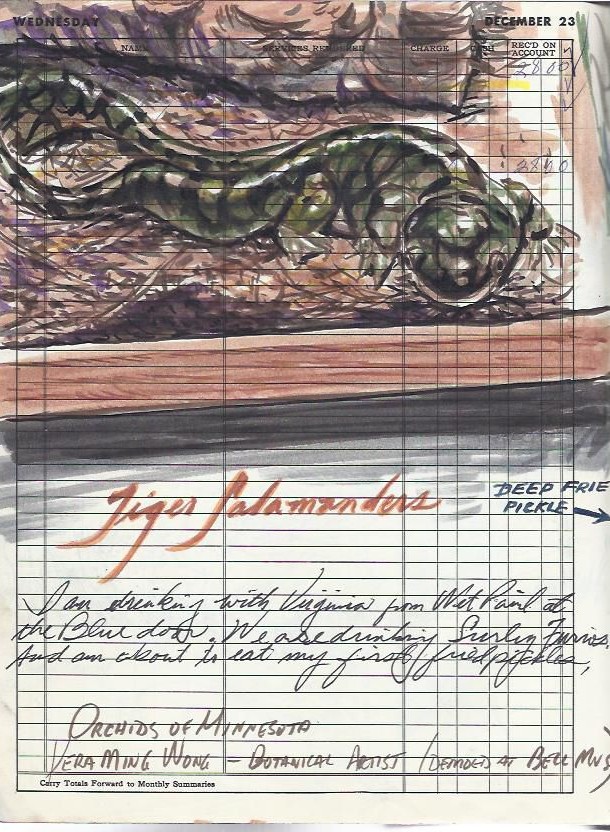 WEDNESDAY DECEMBER 23
NAME SERVICES RENDERED CHARGE CASH REC'D ON ACCOUNT
2800
2800
Tiger Salamanders
DEEP FRIE
PICKLE →
I am drinking with Virginia from Wet Paint at
the Blue door. We are drinking Surly Furios.
And am about to eat my first fried pickles,
ORCHIDS OF MINNESOTA
VERA MING WONG - BOTANICAL ARTIST / DEMOED AT BELL MUS
Carry Totals Forward to Monthly Summaries